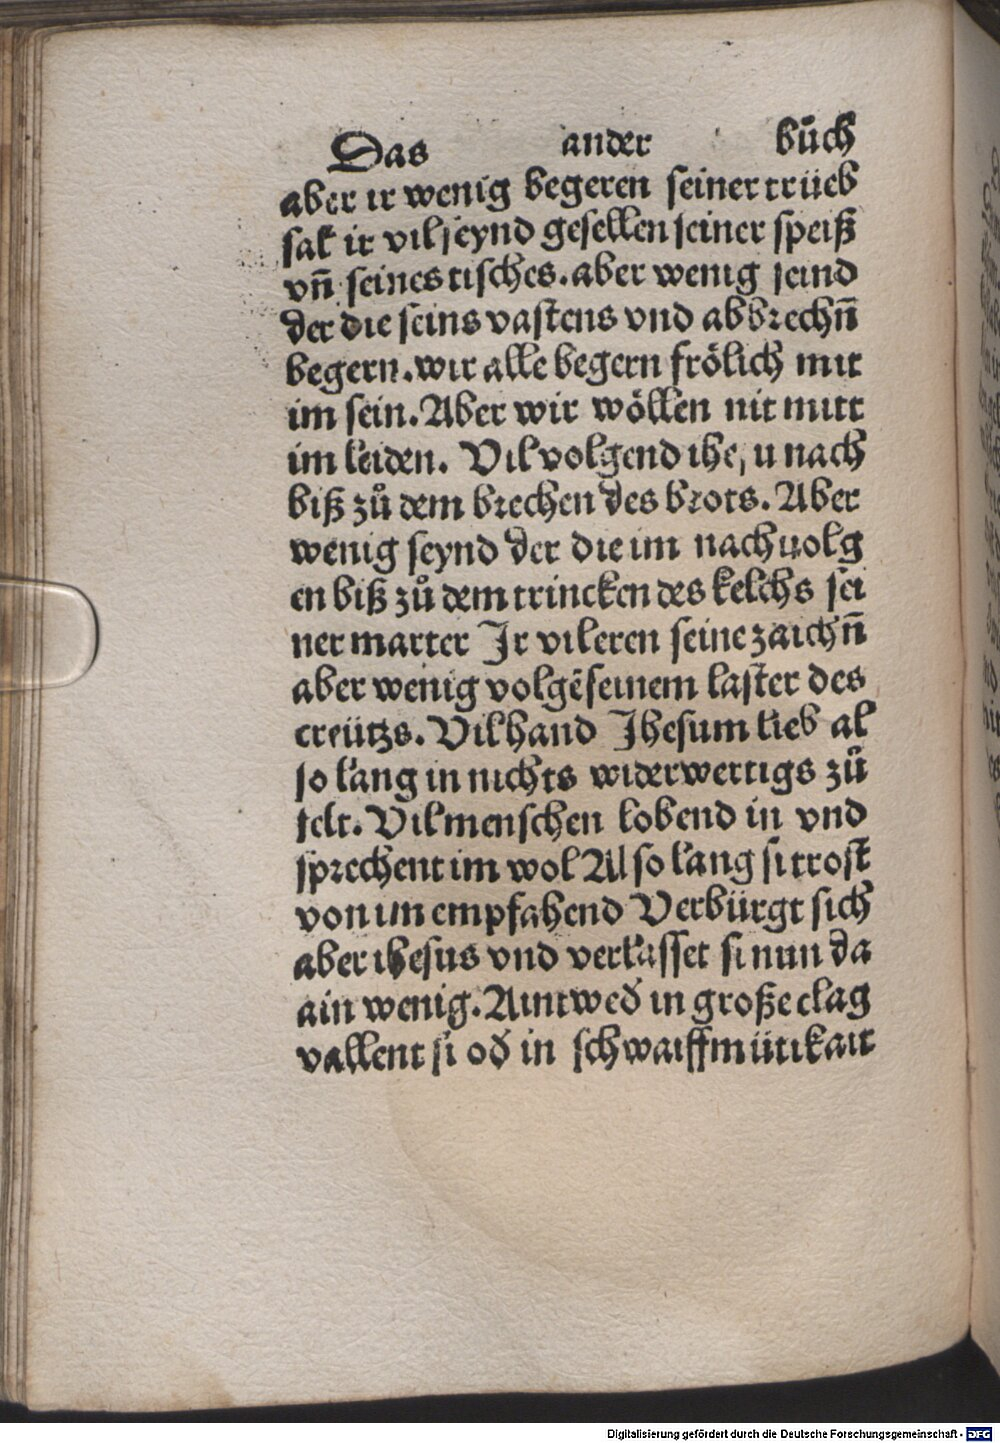 Das ander bůch
aber ir wenig begeren seiner trüeb
sal ir vil seynd gesellen seiner speiß
vñ seines tisches. aber wenig seind
der die seins vastens vnd abbrechñ
begern. wir alle begern frölich mit
im sein. Aber wir wöllen nit mitt
im leiden. Vil volgend ihesu nach
biß zů dem brechen des brots. Aber
wenig seynd der die im nachuolg
en biß zů dem trincken des kelchs sei
ner marter Ir vil eren seine zaichñ
aber wenig volgē seinem laster des
creützs. Vil hand Ihesum lieb al
so lang in nichts widerwertigs zů
felt. Vil menschen lobend in vnd
sprechent im wol Also lang si trost
von im empfahend Verbürgt sich
aber ihesus vnd verlasset si nun da
ain wenig. Aintwed̄ in große clag
vallent si od̄ in schwaiffmütikait
Digitalisierung gefördert durch die Deutsche Forschungsgemeinschaft - DFG